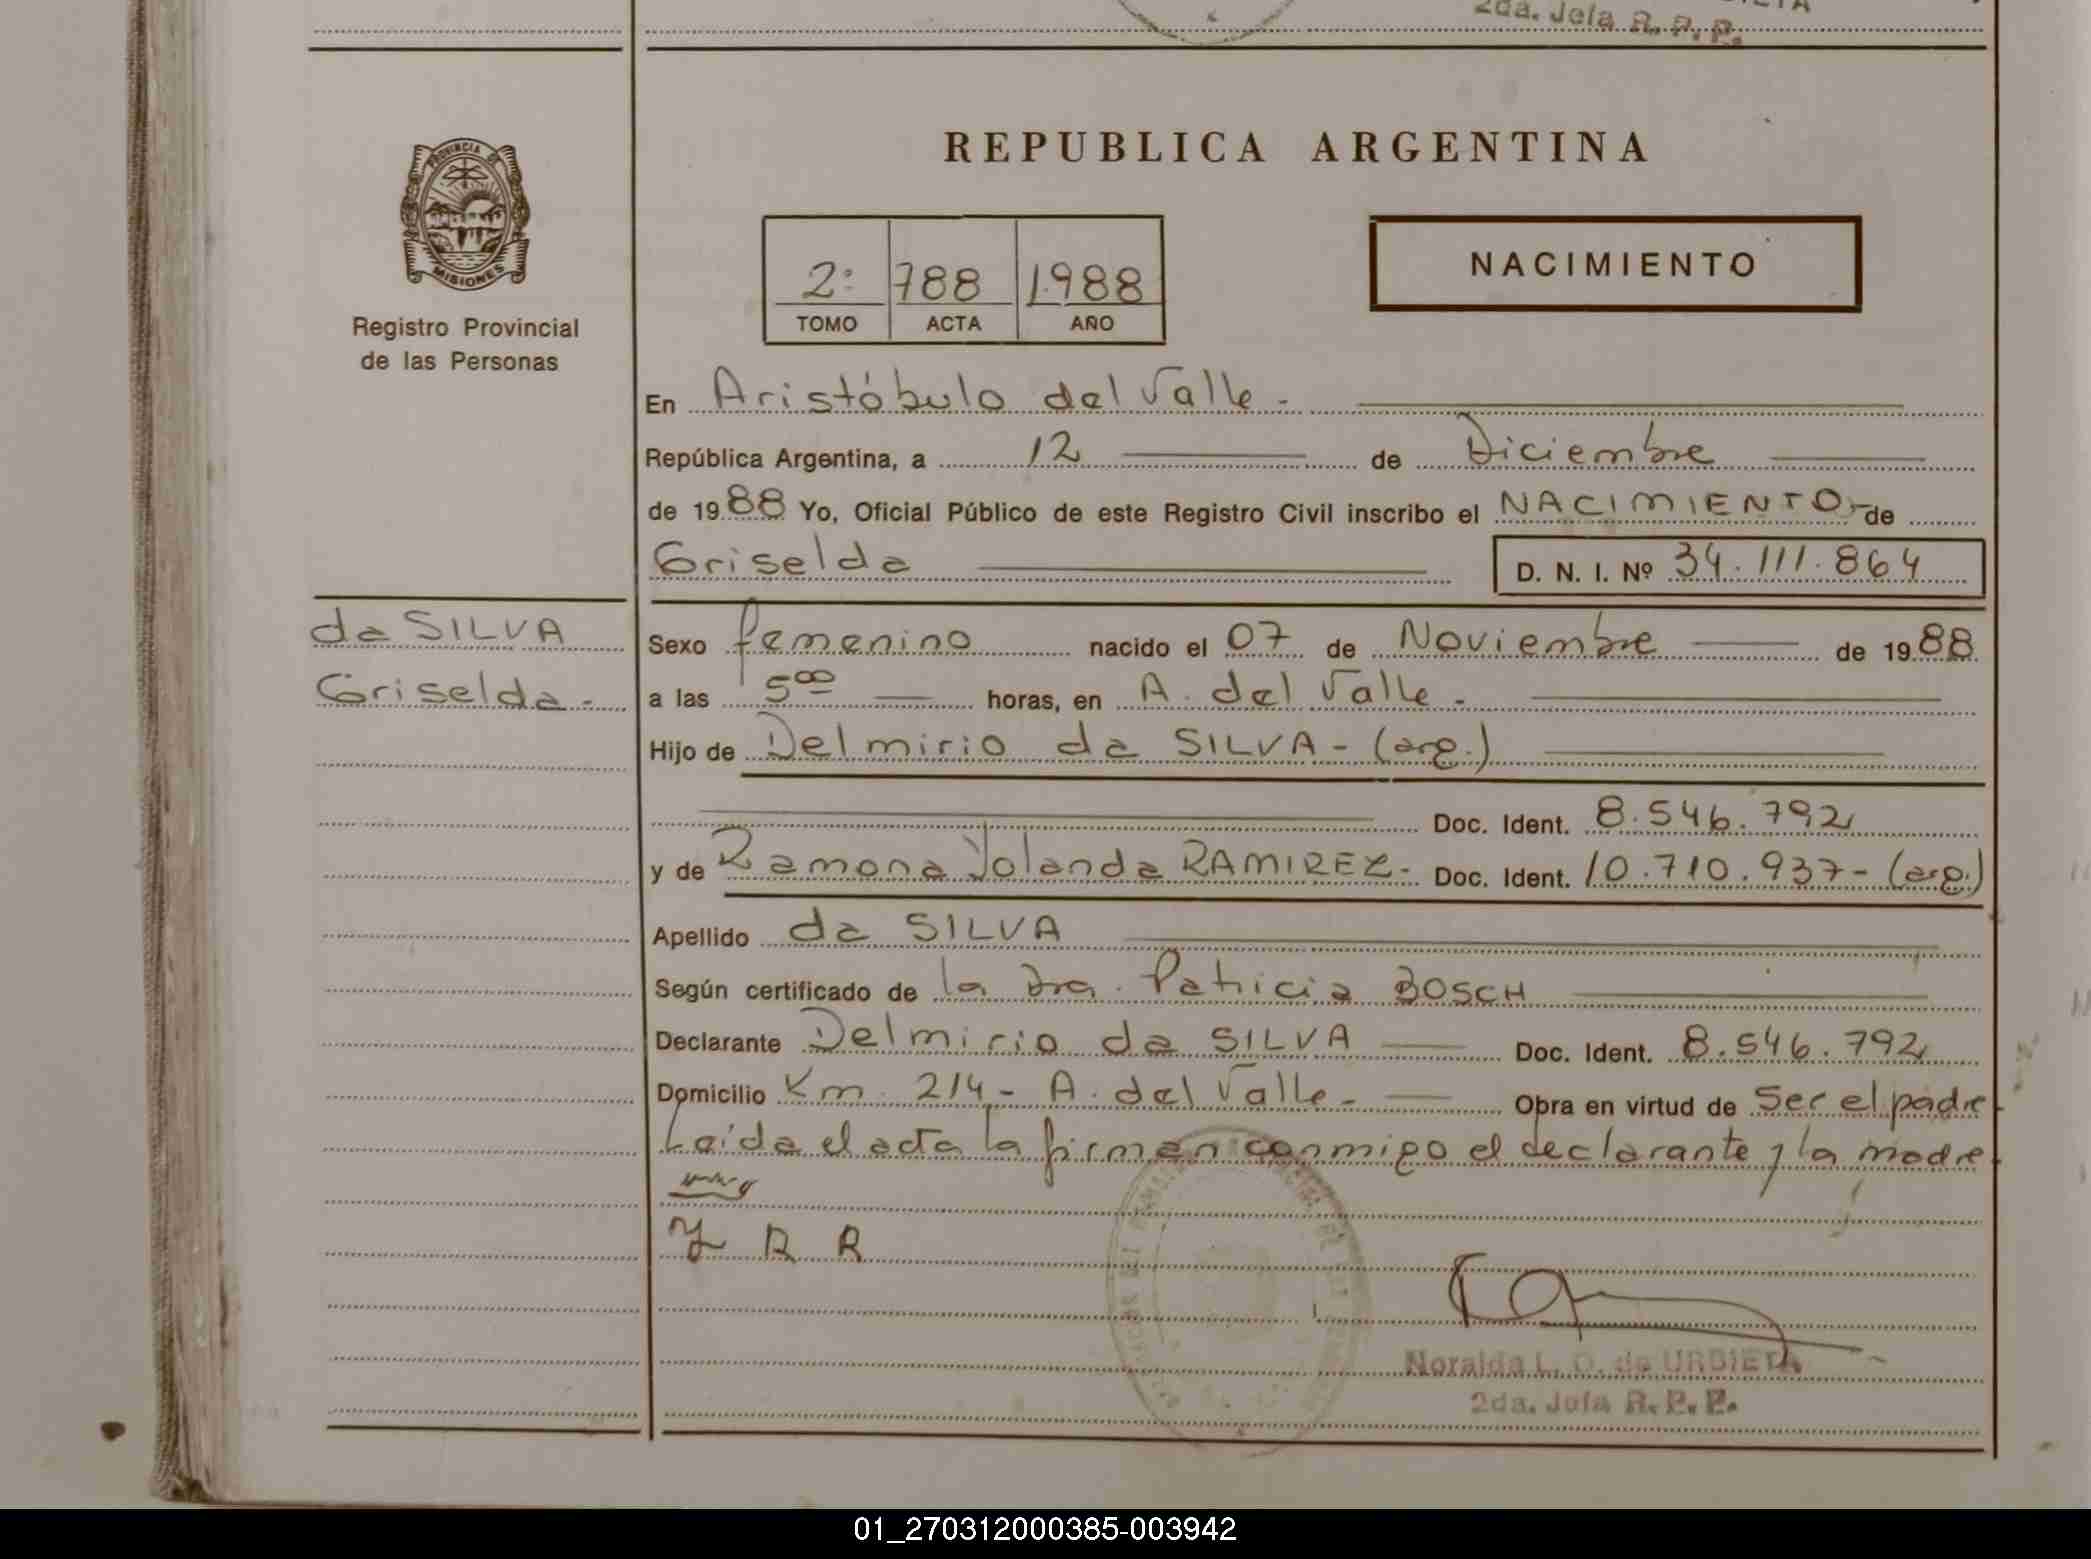 2da. Jefa R. P. P.
PROVINCIA DE
MISIONES
Registro Provincial
de las Personas
REPUBLICA ARGENTINA
2: 788 1988
TOMO ACTA AÑO
NACIMIENTO
En Aristóbulo del Valle -
República Argentina, a 12 de Diciembre
de 1988 Yo, Oficial Público de este Registro Civil inscribo el NACIMIENTO- de
Griselda D. N. I. Nº 34.111.864
da SILVA
Griselda -
Sexo femenino nacido el 07 de Noviembre de 1988
a las 5 00 horas, en A. del Valle -
Hijo de Delmirio da SILVA - (arg.)
Doc. Ident. 8.546.792
y de Ramona Yolanda RAMIREZ - Doc. Ident. 10.710.937 - (arg.)
Apellido da SILVA
Según certificado de la Dra. Patricia BOSCH
Declarante Delmirio da SILVA Doc. Ident. 8.546.792
Domicilio Km. 214 - A. del Valle - Obra en virtud de ser el padre
Leída el acta la firman conmigo el declarante y la madre
Y R R
Noralda L. O. de URBIETA
2da. Jefa R. P. P.
01_270312000385-003942